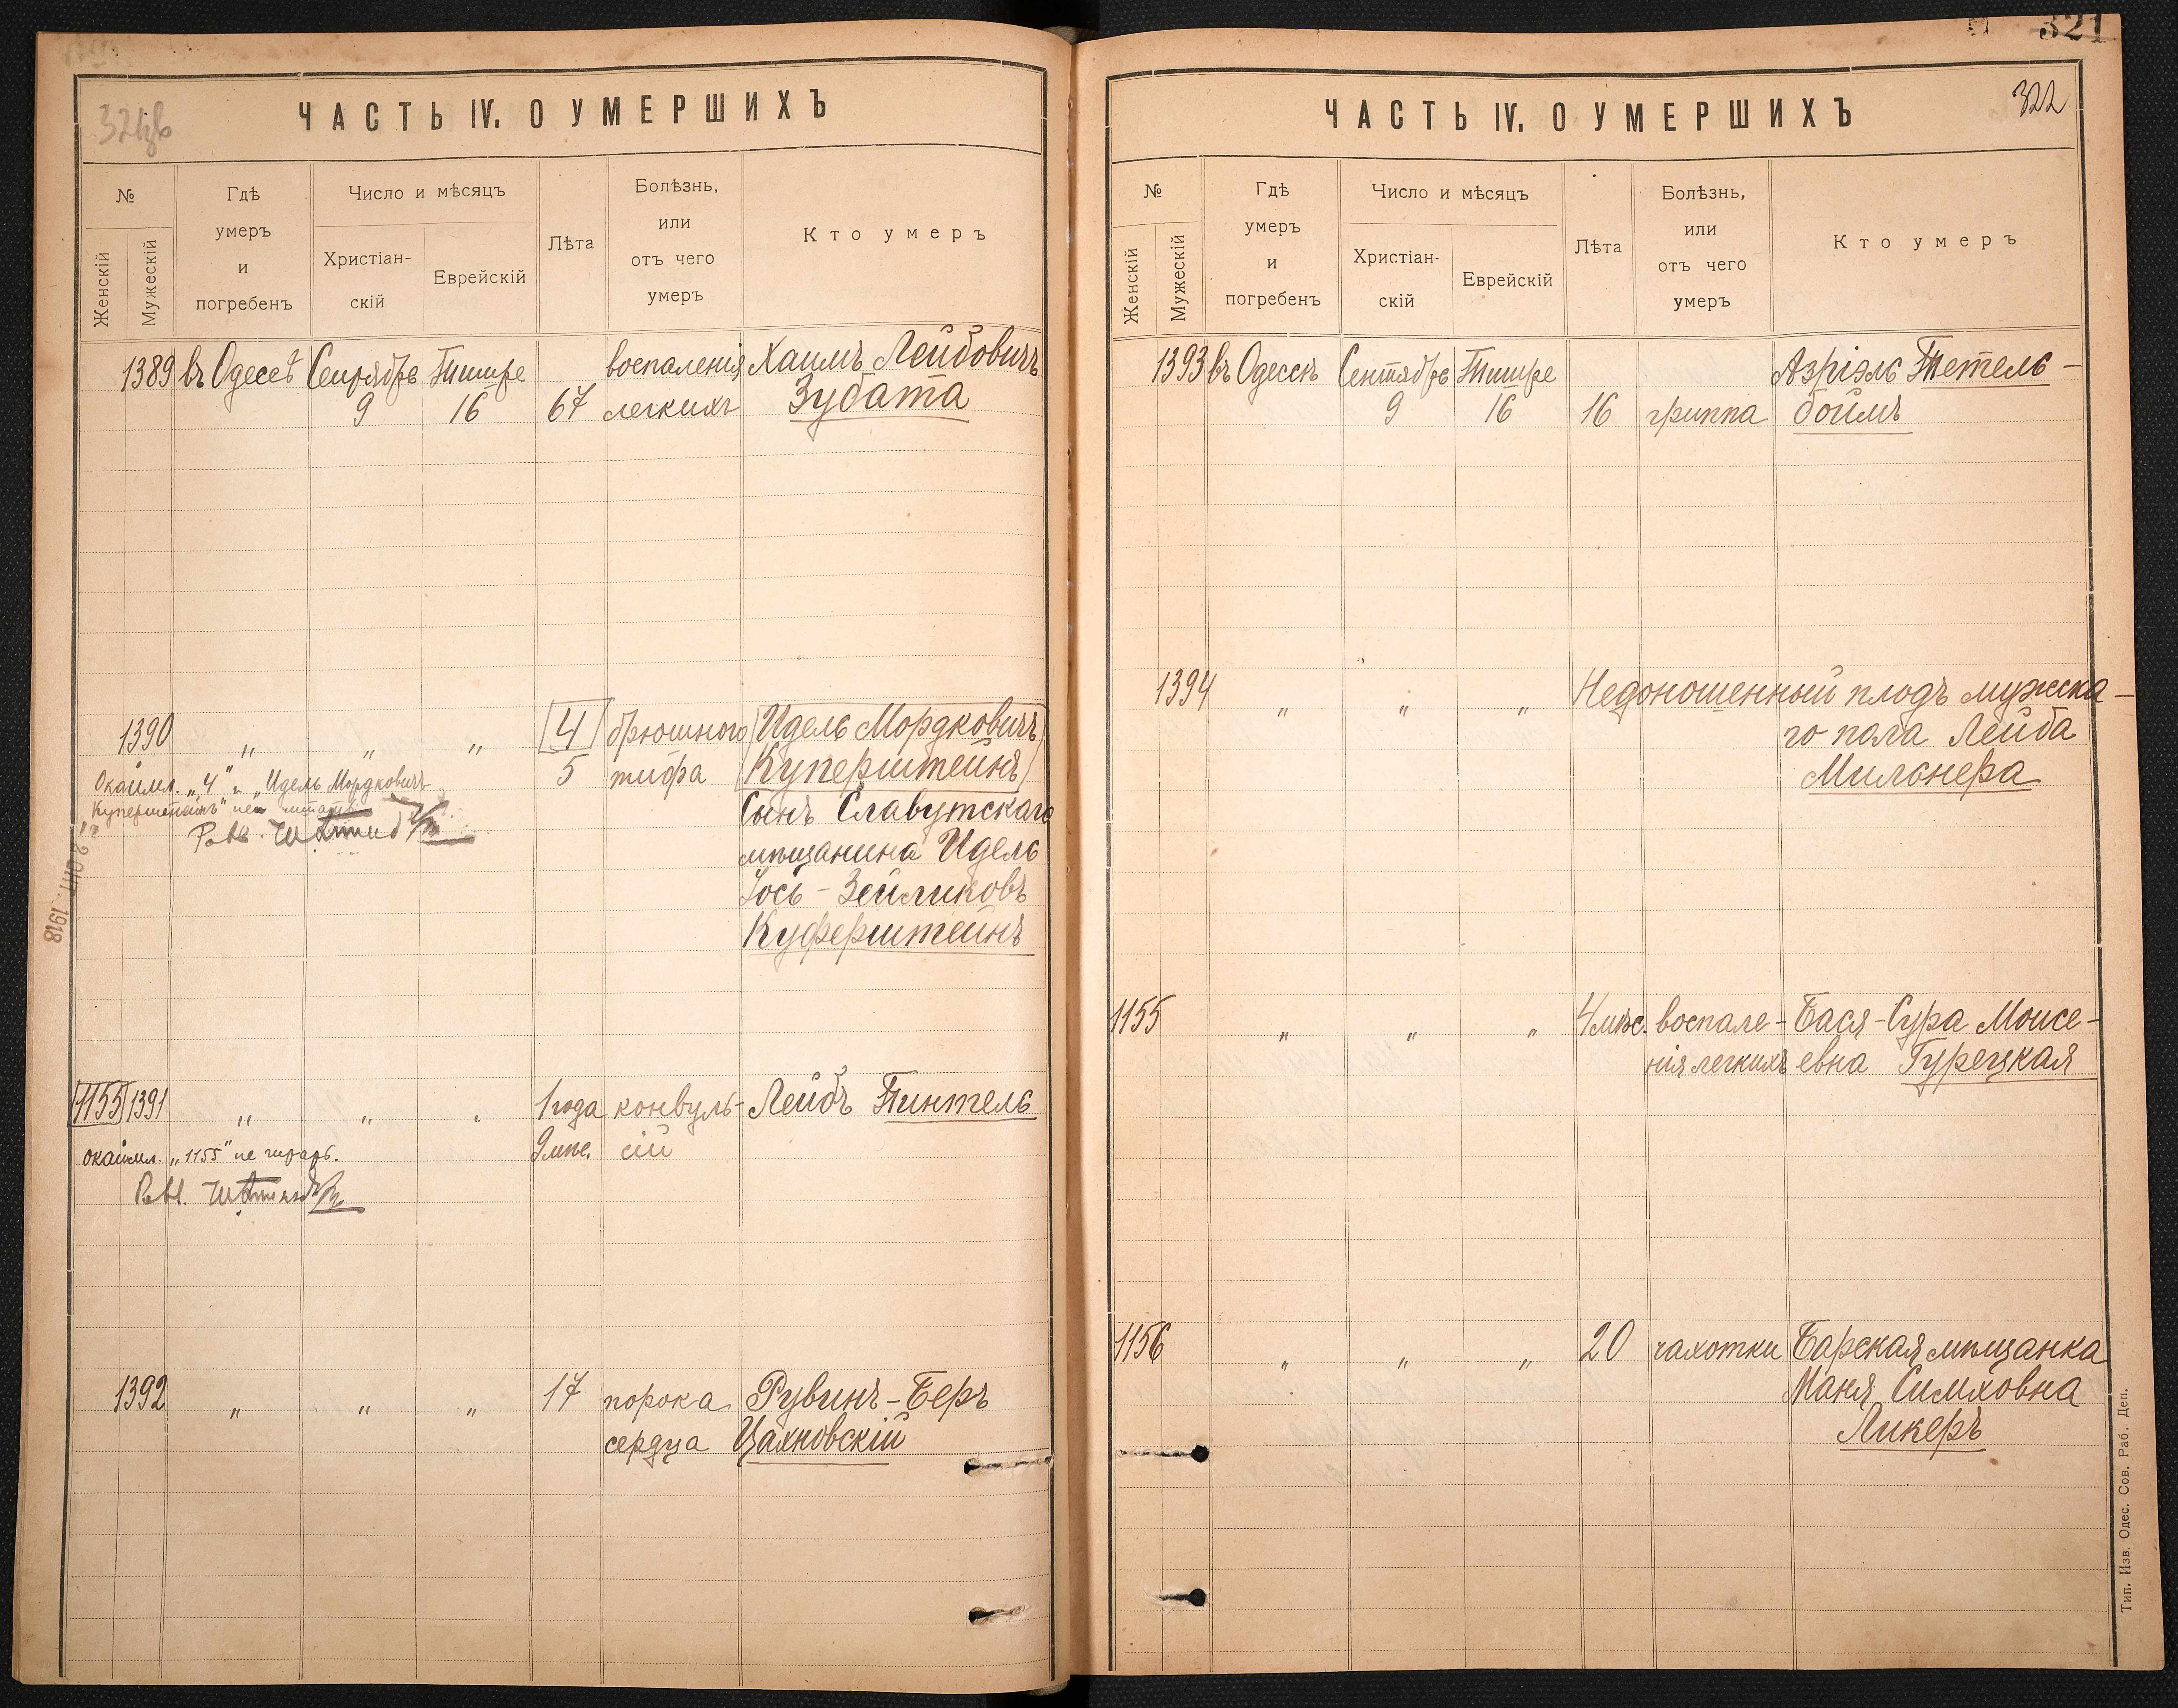 ЧАСТЬ IV. О УМЕРШИХЪ
№
Женскій
Мужескій
Гдѣ
умеръ
и
погребенъ
Число и мѣсяцъ
Христіан-
скій
Еврейскій
Лѣта
Болѣзнь,
или
отъ чего
умеръ
Кто умеръ
1389 въ Одессѣ Сентябрь Тишре воспаленія Хаимъ Лейбовичъ
9 16 67 легкихъ Зубата
1390 „ „ „ 4 брюшного Идель Мордковичъ
5 тифа Куперштейнъ
Окаймл. „4" и „Идель Мордковичъ
Куперштейнъ" не читать
Сынъ Славутскаго
мѣщанина Идель
Іось-Зейликовъ
Куферштейнъ
1918
1155 1391 „ „ „ 1 года конвуль- Лейбъ Тинтель
9 мѣс. сій
окаймл. „1155" не читать.
1392 „ „ „ 17 порока Рувинъ-Беръ
сердца Цахновскій
321
322
ЧАСТЬ IV. О УМЕРШИХЪ
№
Женскій
Мужескій
Гдѣ
умеръ
и
погребенъ
Число и мѣсяцъ
Христіан-
скій
Еврейскій
Лѣта
Болѣзнь,
или
отъ чего
умеръ
Кто умеръ
1393 въ Одессѣ Сентябрь Тишре Азріэль Тетель-
9 16 16 гриппа боймъ
1394 „ „ „ Недоношенный плодъ мужеска-
го пола Лейба
Мильнера
1155 „ „ „ 4 мѣс. воспале- Бася-Сура Моисе-
нія легкихъ евна Гурецкая
1156 „ „ „ 20 чахотки Барская мѣщанка
Маня Симховна
Ликеръ
Тип. Изв. Одес. Сов. Раб. Деп.